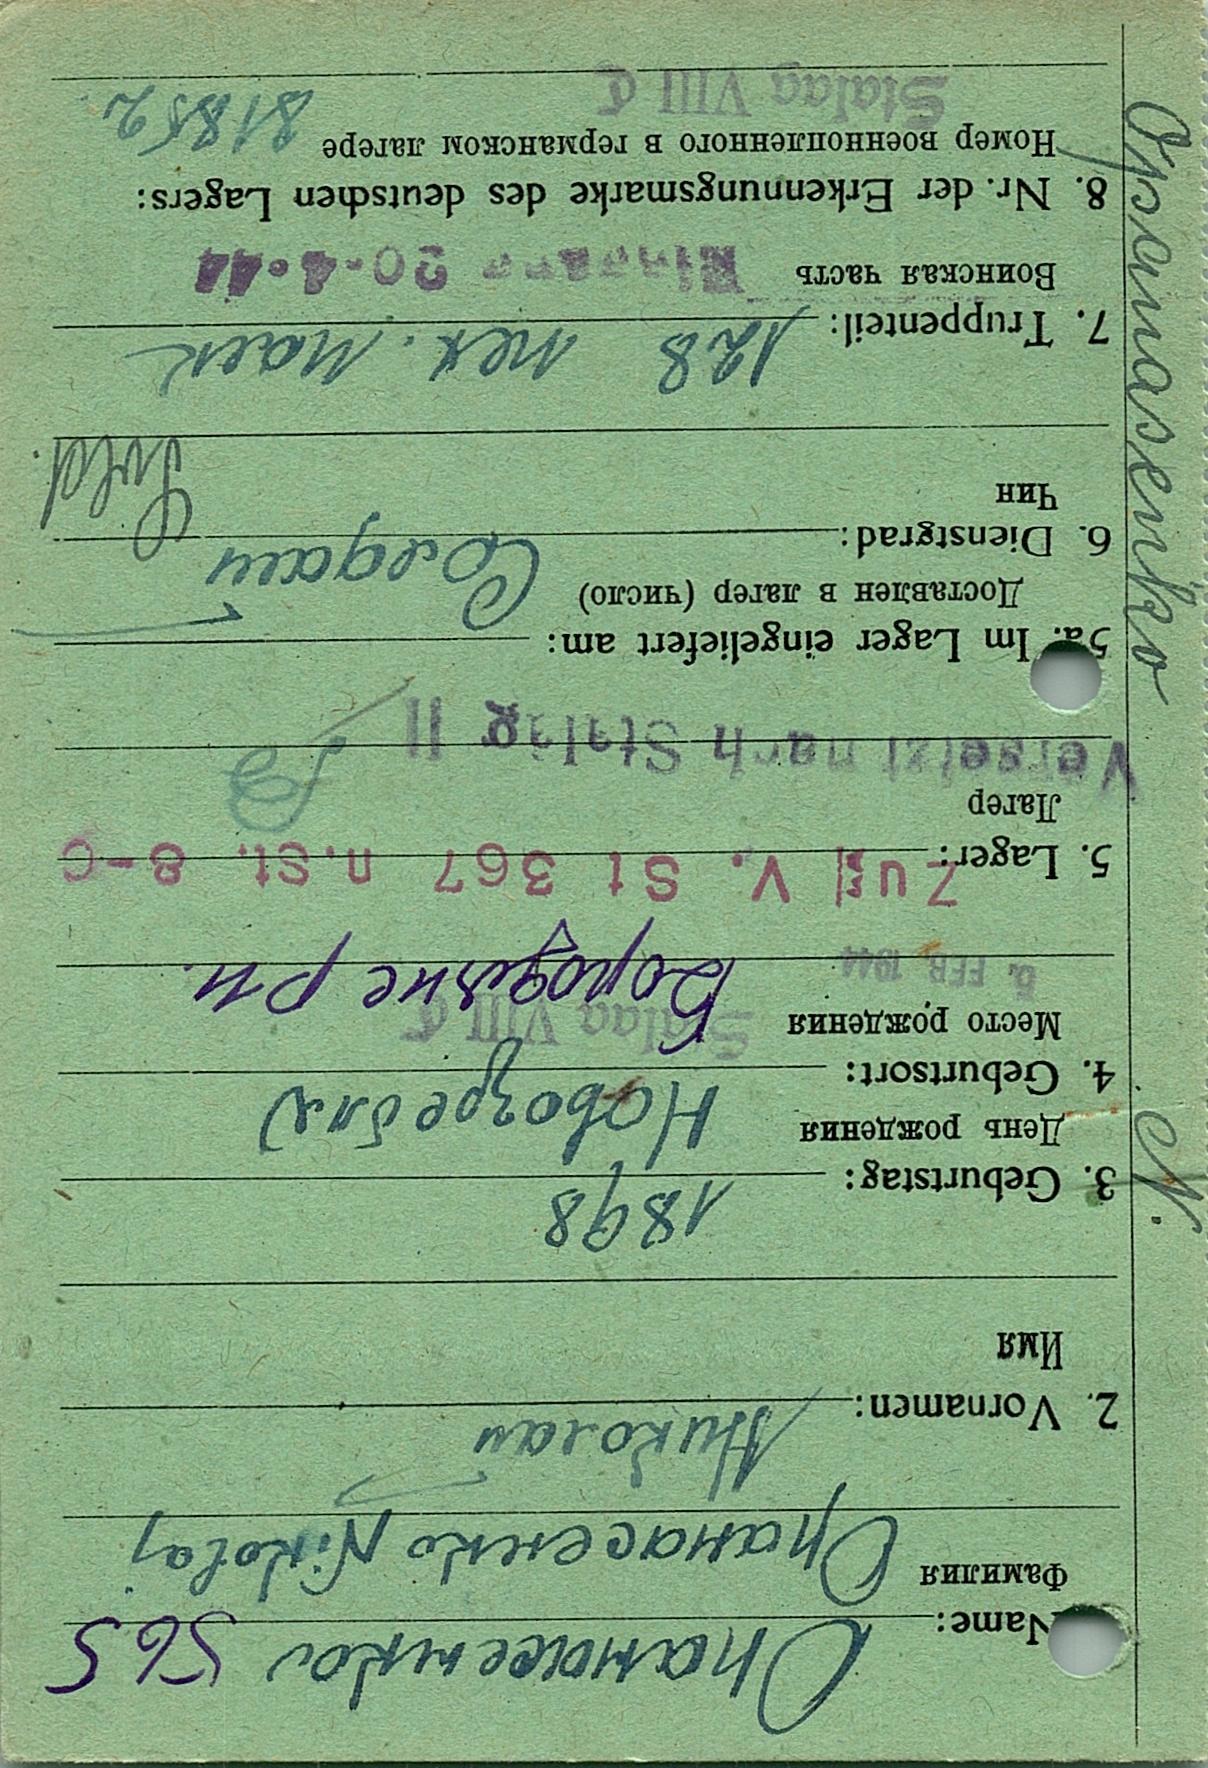 Опанасенков 565
Name:
Фамилия
Опанасенко Nikolaj
Николай
2. Vornamen:
Имя
1898
3. Geburtstag:
День рождения
Новогребля
4. Geburtsort:
Место рождения
Stalag VIII C
5. FEB. 1944
рн.
Zug V. St 367 n. St. 8-C
5. Lager:
Лагер
Versetzt nach Stalag II
5a. Im Lager eingeliefert am:
Доставлен в лагер (число)
Солдат
6. Dienstgrad:
Чин
Sold.
128
7. Truppenteil:
Воинская часть
Eingang 20.4.44
8. Nr. der Erkennungsmarke des deutschen Lagers:
Номер военнопленного в германском лагере
81852
Stalag VIII C
Opanasenko N.